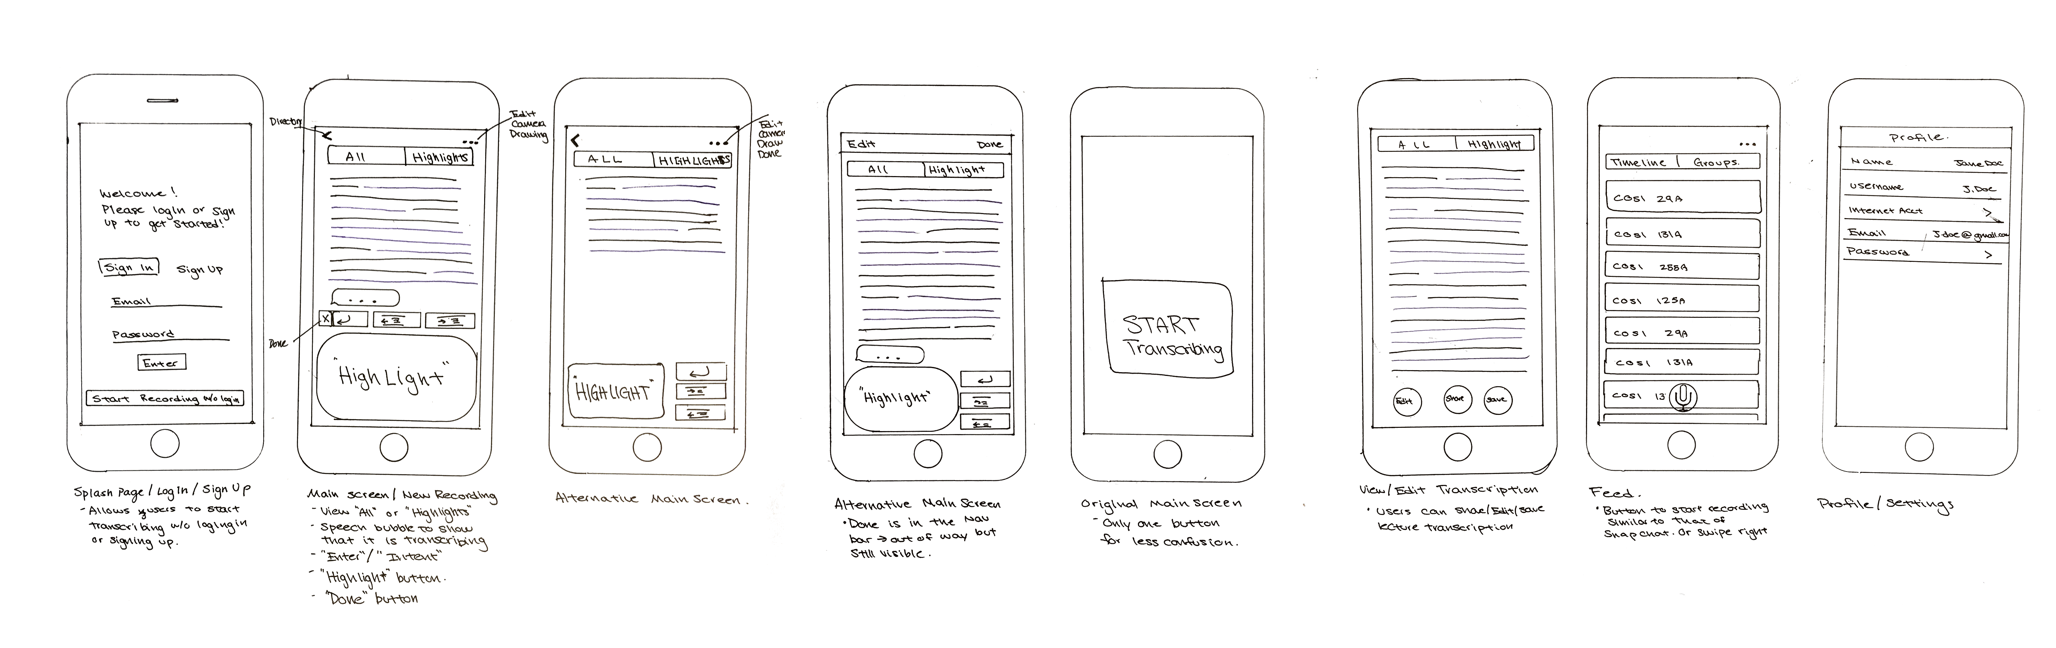 Welcome!
Please login or sign
up to get started!
Sign In
Sign Up
Email
Password
Enter
Start Recording w/o login
Splash Page / Log In / Sign Up
- Allows users to start
transcribing w/o logingin
or signing up.
Directory
<
...
Edit
Camera
Drawing
All
Highlights
...
X
Done
"HighLight"
Main screen / New Recording
- View "All" or "Highlights"
- Speech bubble to show
that it is transcribing
- "Enter"/"Intent"
- "Highlight" button.
- "Done" button
<
...
Edit
Camera
Draw
Done
ALL
HIGHLIGHTS
"HIGHLIGHT"
Alternative Main Screen.
Edit
Done
All
Highlight
...
"Highlight"
Alternative Main Screen
• Done is in the Nav
bar → out of way but
still visible.
START
Transcribing
Original Main Screen
- Only one button
for less confusion.
ALL
Highlight
Edit
Share
Save
View/Edit Transcription
• Users can share/Edit/save
lecture transcription
...
Timeline | Groups.
COSI 29A
COSI 131A
COSI 288A
COSI 125A
COSI 29A
COSI 131A
COSI 13
Feed.
• Button to start recording
similar to that of
Snapchat. Or swipe right
Profile.
Name
Jane Doe
username
J.Doe
Internet Acct
>
Email
J.doe@gmail.com
Password
>
Profile/Settings